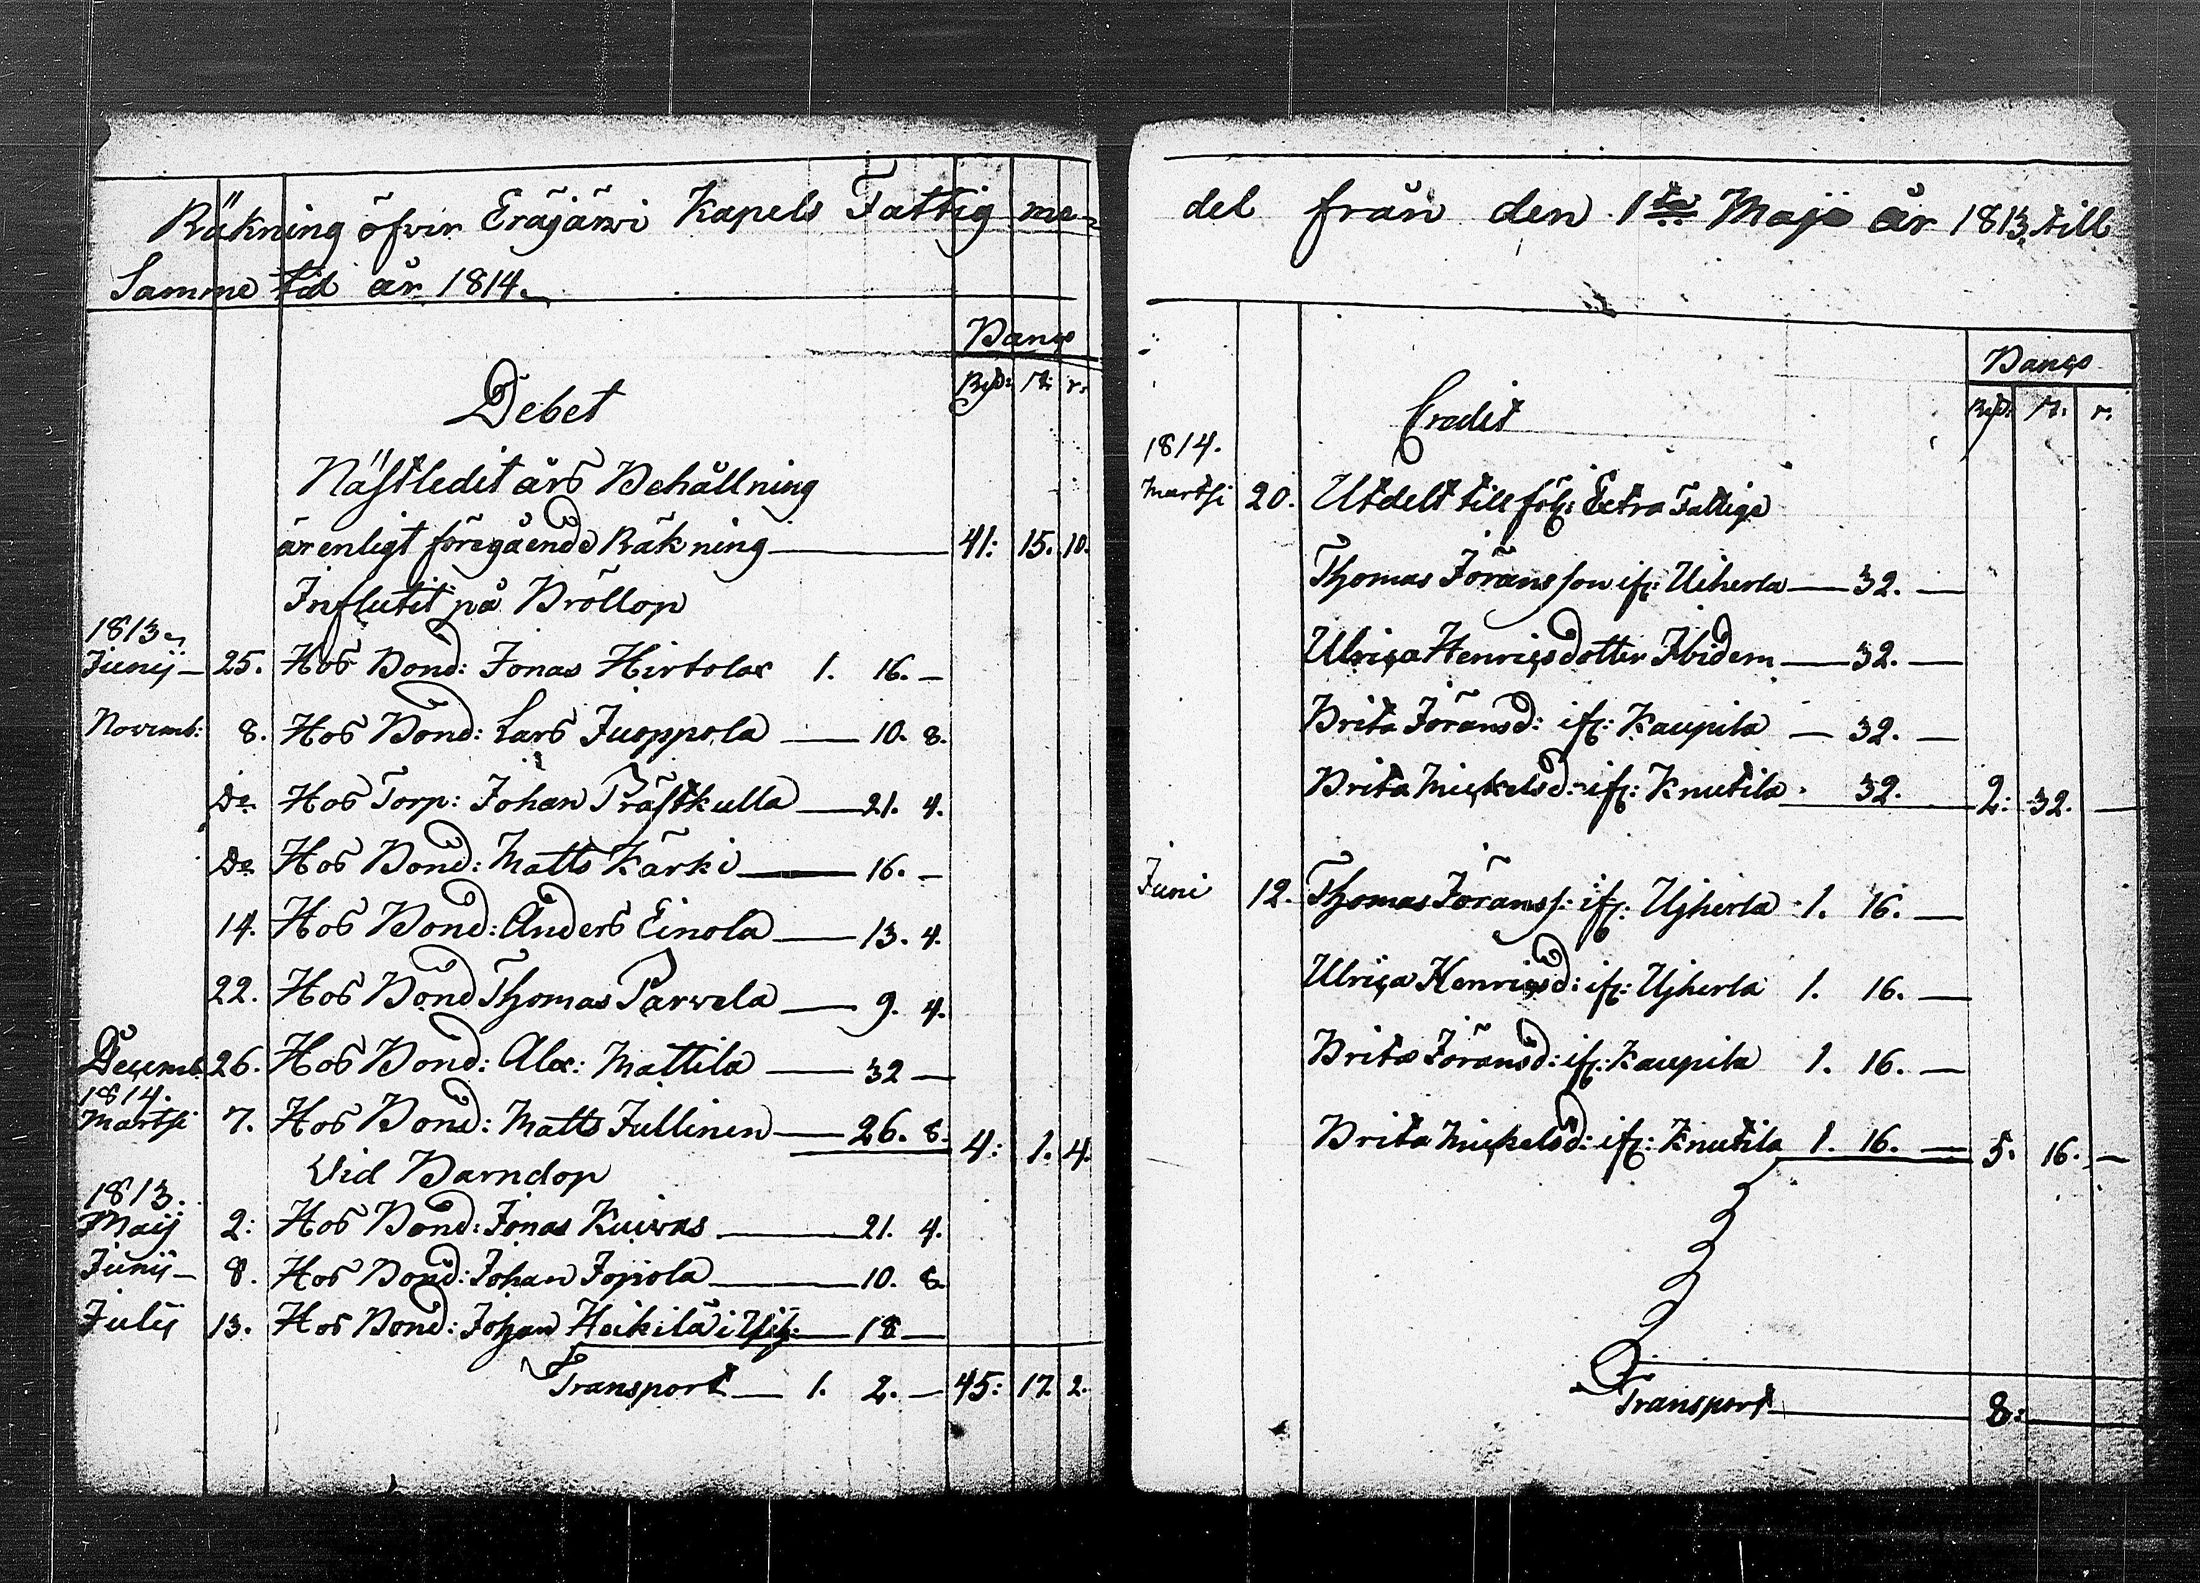 Räkning öfver Eräjärvi Kapels Fattig me-
Samme tid år 1814.
Banco
Rd: ß: r.
Debet
Nästledit års Behållning
är enligt föregående Räkning 41: 15. 10.
Influtit på Bröllop
1813.
Junij 25. Hos Bond: Jonas Hirtola 1. 16. —
Novemb: 8. Hos Bond: Lars Juoppola — 10. 8.
Do Hos Torp: Johan Prästkulla — 21. 4.
Do Hos Bond: Matts Kärki — 16. —
14. Hos Bond: Anders Einola — 13. 4.
22. Hos Bond Thomas Parvela — 9. 4.
Decemb. 26. Hos Bond: Alex: Mattila — 32 —
1814.
Martii 7. Hos Bond: Matts Jullinen — 26. 8. 4: 1. 4.
Vid Barndop
1813.
Maij 2: Hos Bond: Jonas Kuivas — 21. 4.
Junij 8. Hos Bond: Johan Jopola — 10. 8.
Julij 13. Hos Bond: Johan Heikilä i — 18 —
Transport — 1. 2. — 45: 17 2.
del från den 1sta Maji år 1813 till
Banco
Rd: ß. r.
Credit
1814.
Martii 20. Utdelt till föl: Extra Fattiga
Thomas Jöransson ifr: Uiherla — 32. —
Ulrica Henricsdotter Ibidem — 32. —
Brita Jöransd: ifr: Kaupila — 32. —
Brita Mickelsd: ifr: Knutila . 32. 2: 32. —
Juni 12. Thomas Jöranss: ifr: Ujherla 1. 16. —
Ulrica Henricsd: ifr: Ujherla 1. 16. —
Brita Jöransd: ifr: Kaupila 1. 16. —
Brita Mickelsd: ifr: Knutila 1. 16. — 5. 16. —
Transport — 8: —